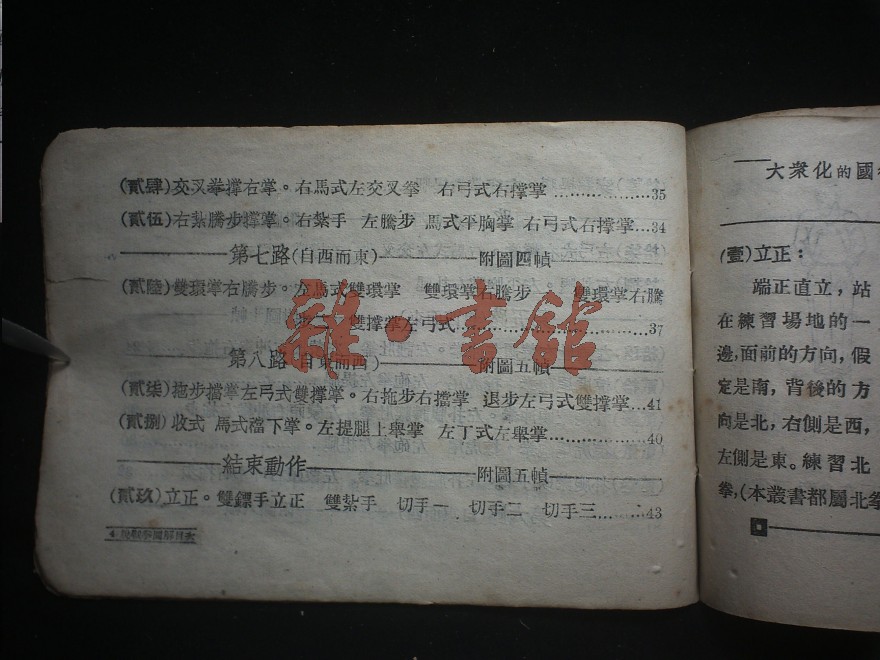 (貳肆)交叉拳撐右掌。右馬式左交叉拳 右弓式右撐掌………………35
(貳伍)右紮騰步撐掌。右紮手 左騰步 馬式平胸掌 右弓式右撐掌…34
第七路(自西而東) 附圖四幀
(貳陸)雙環掌右騰步。左馬式雙環掌 雙環掌右騰步 雙環掌右騰
雙撐掌左弓式………………37
第八路(自東而西) 附圖五幀
(貳柒)拖步擋掌左弓式雙撐掌。右拖步右擋掌 退步左弓式雙撐掌…41
(貳捌)收式 馬式檔下掌。左提腿上舉掌 左丁式左舉掌………………40
結束動作 附圖五幀
(貳玖)立正。雙鏢手立正 雙紮手 切手一 切手二 切手三………43
雜·書館
大衆化的國
(壹)立正：
端正直立，站
在練習場地的一
邊,面前的方向，假
定是南，背後的方
向是北，右側是西，
左側是東。練習北
拳,(本叢書都屬北拳